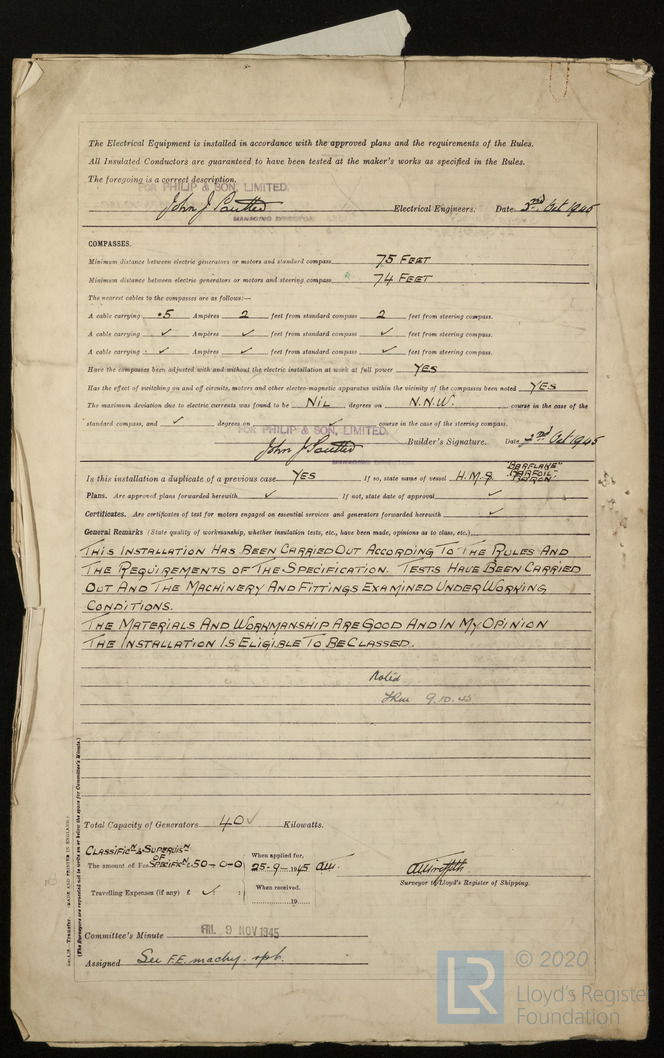 The Electrical Equipment is installed in accordance with the approved plans and the requirements of the Rules.
All Insulated Conductors are guaranteed to have been tested at the maker's works as specified in the Rules.
The foregoing is a correct description.
FOR PHILIP & SON, LIMITED.
John J Sautter Electrical Engineers. Date 2nd Oct 1945
MANAGING DIRECTOR
COMPASSES.
Minimum distance between electric generators or motors and standard compass 75 FEET
Minimum distance between electric generators or motors and steering compass 74 FEET
The nearest cables to the compasses are as follows:—
A cable carrying .5 Ampères 2 feet from standard compass 2 feet from steering compass.
A cable carrying ✓ Ampères ✓ feet from standard compass ✓ feet from steering compass.
A cable carrying ✓ Ampères ✓ feet from standard compass ✓ feet from steering compass.
Have the compasses been adjusted with and without the electric installation at work at full power YES
Has the effect of switching on and off circuits, motors and other electro-magnetic apparatus within the vicinity of the compasses been noted YES
The maximum deviation due to electric currents was found to be NIL degrees on N.N.W. course in the case of the
standard compass, and ✓ degrees on ✓ course in the case of the steering compass.
FOR PHILIP & SON, LIMITED.
John J Sautter Builder's Signature. Date 2nd Oct 1945
MANAGING DIRECTOR
"BARFLAKE"
Is this installation a duplicate of a previous case YES If so, state name of vessel H.M.S. BARFOIL
Plans. Are approved plans forwarded herewith ✓ If not, state date of approval ✓
Certificates. Are certificates of test for motors engaged on essential services and generators forwarded herewith ✓
General Remarks (State quality of workmanship, whether insulation tests, etc., have been made, opinions as to class, etc.)
THIS INSTALLATION HAS BEEN CARRIED OUT ACCORDING TO THE RULES AND
THE REQUIREMENTS OF THE SPECIFICATION. TESTS HAVE BEEN CARRIED
OUT AND THE MACHINERY AND FITTINGS EXAMINED UNDER WORKING
CONDITIONS.
THE MATERIALS AND WORKMANSHIP ARE GOOD AND IN MY OPINION
THE INSTALLATION IS ELIGIBLE TO BE CLASSED.
Noted
9.10.45
Total Capacity of Generators 40 ✓ Kilowatts.
CLASSIFICN & SUPERVISN
OF
The amount of Fee SPECIFICN £50-0-0 When applied for, 25-9-1945
Travelling Expenses (if any) £ ✓ : : When received, 19
Surveyor to Lloyd's Register of Shipping.
Committee's Minute FRI. 9 NOV 1945
Assigned See F.E. machy. rpt.
Transfer. (MADE AND PRINTED IN ENGLAND.)
(The Surveyors are requested not to write on or below the space for Committee's Minute.)
LR © 2020
Lloyd's Register
Foundation